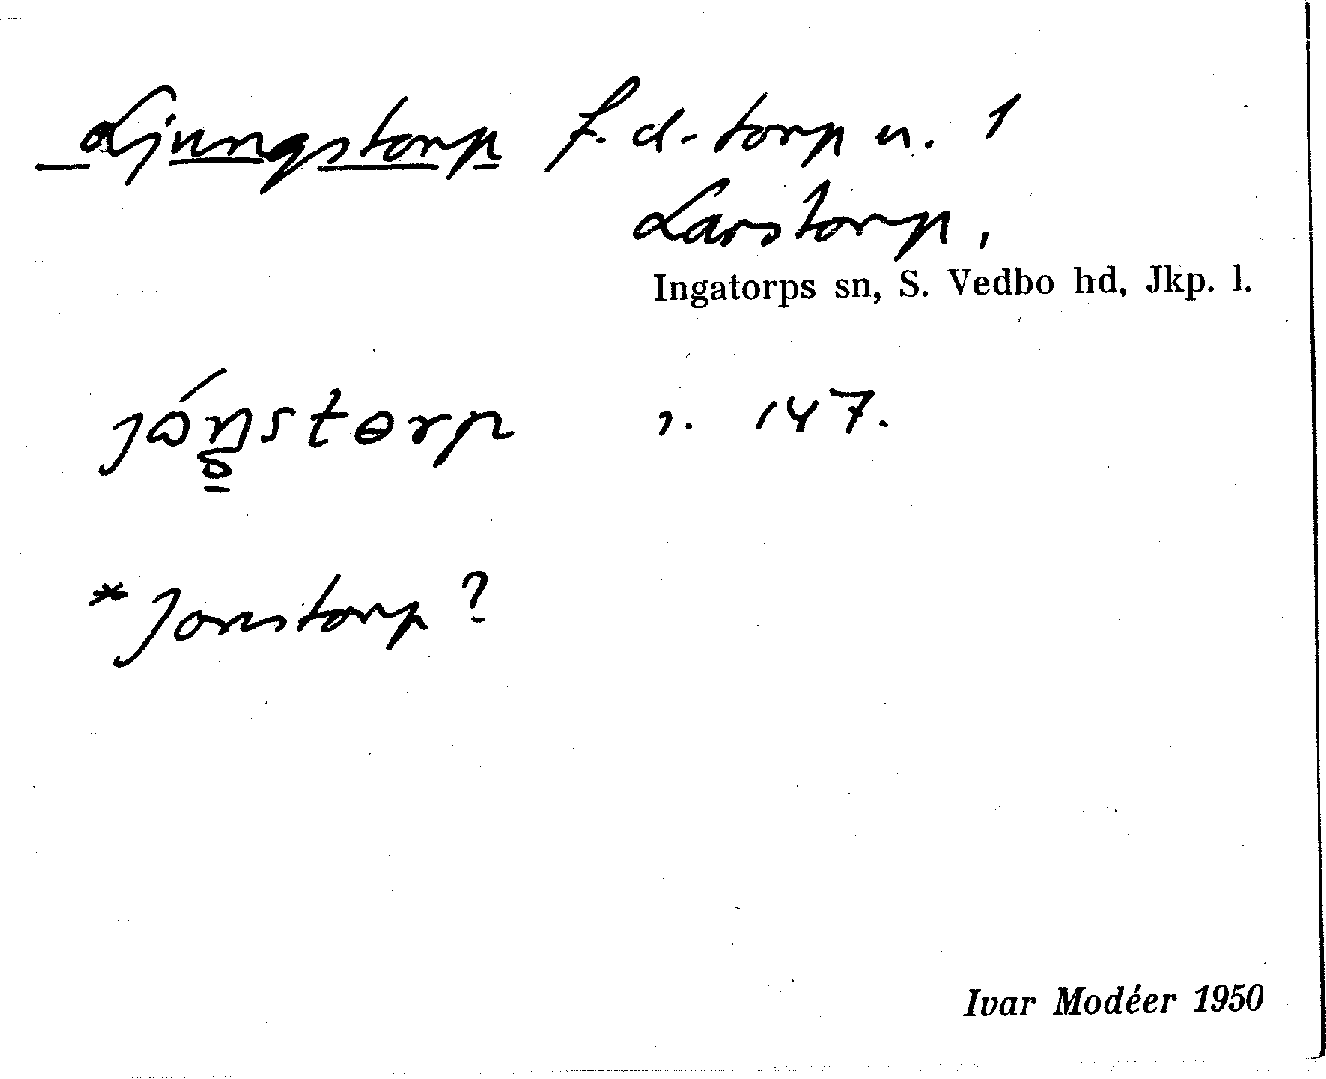 Ljungstorp f.d. torp u. 1
Larstorp,
Ingatorps sn, S. Vedbo hd, Jkp. l.
jóŋstɵrp ı. 147.
*Jonstorp?
Ivar Modéer 1950